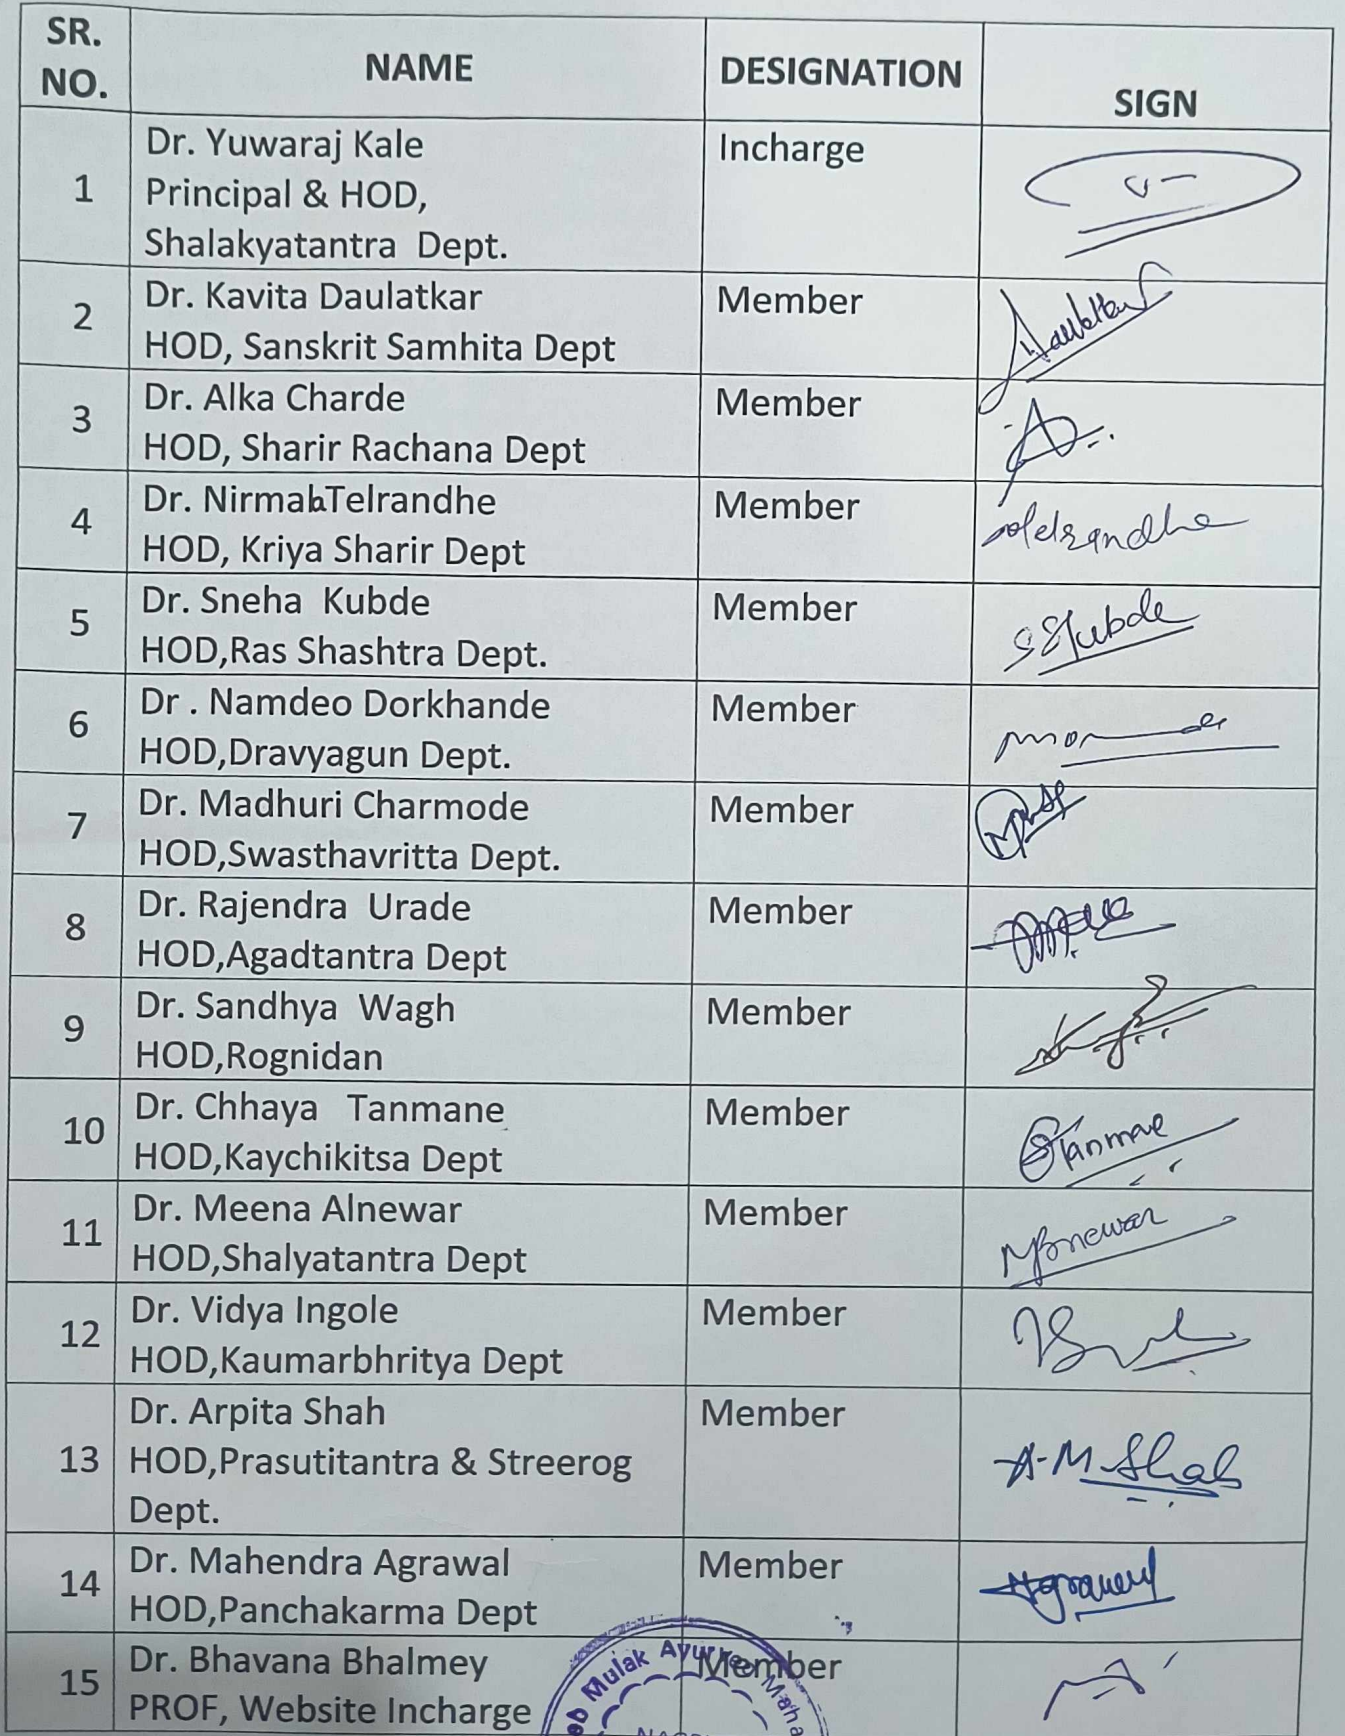 SR.
NO.
NAME
DESIGNATION
SIGN
1
Dr. Yuwaraj Kale
Principal & HOD,
Shalakyatantra Dept.
Incharge
2
Dr. Kavita Daulatkar
HOD, Sanskrit Samhita Dept
Member
3
Dr. Alka Charde
HOD, Sharir Rachana Dept
Member
4
Dr. Nirmala Telrandhe
HOD, Kriya Sharir Dept
Member
Telrandhe
5
Dr. Sneha Kubde
HOD,Ras Shashtra Dept.
Member
SSKubde
6
Dr . Namdeo Dorkhande
HOD,Dravyagun Dept.
Member
7
Dr. Madhuri Charmode
HOD,Swasthavritta Dept.
Member
8
Dr. Rajendra Urade
HOD,Agadtantra Dept
Member
9
Dr. Sandhya Wagh
HOD,Rognidan
Member
10
Dr. Chhaya Tanmane
HOD,Kaychikitsa Dept
Member
11
Dr. Meena Alnewar
HOD,Shalyatantra Dept
Member
12
Dr. Vidya Ingole
HOD,Kaumarbhritya Dept
Member
13
Dr. Arpita Shah
HOD,Prasutitantra & Streerog
Dept.
Member
A-M Shah
14
Dr. Mahendra Agrawal
HOD,Panchakarma Dept
Member
Agrawal
15
Dr. Bhavana Bhalmey
PROF, Website Incharge
Member
Mulak